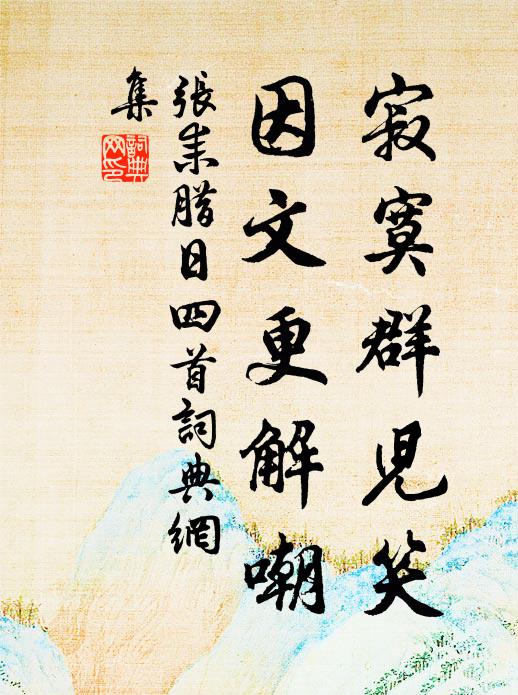 寂寞群児笑
因文更解嘲
張耒腊日四首詞典網
集
詞典
网印